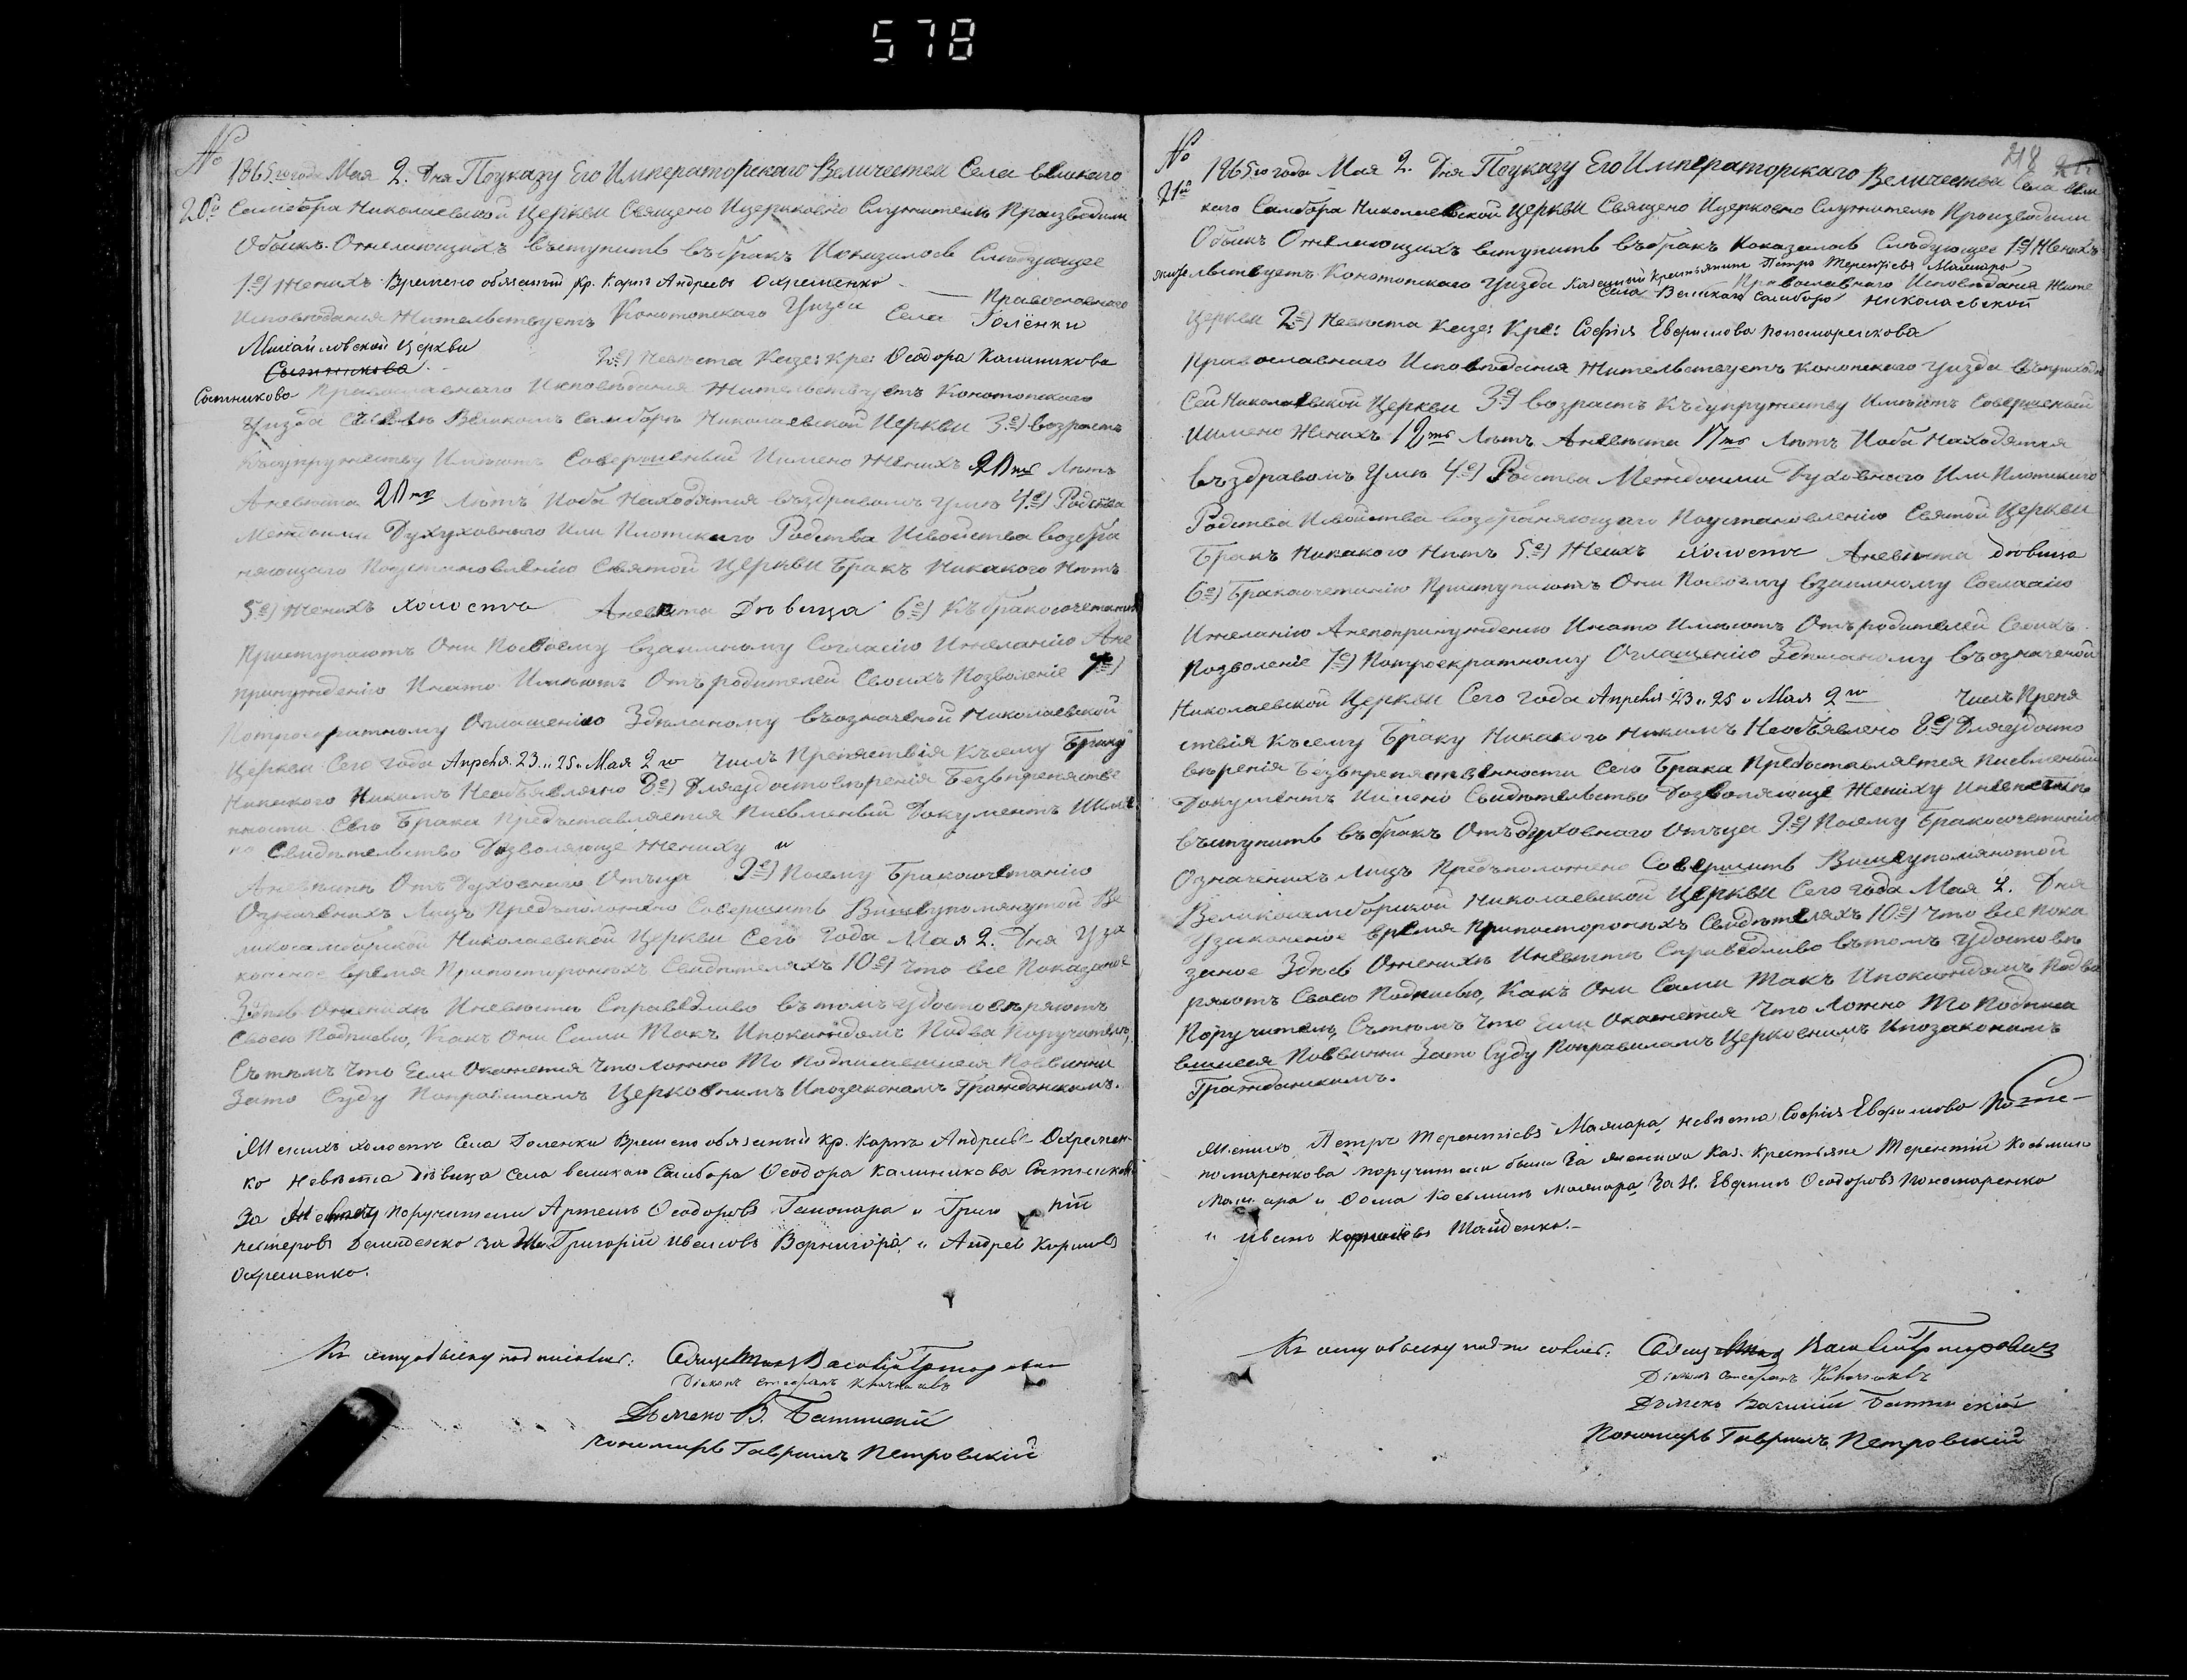 578
№
20й
1865го года Мая 2. Дня Поуказу Его Императорскаго Величества Села великаго
Самбора Николаевской Церкви Священо Ицерковно Служители Производили
Обыскъ Ожелающихъ вступить въбракъ Иоказалось Слѣдующее
1е) Женихъ Времено обязаный кр. Карпъ Андреевъ Охременко Православнаго
Исповѣдания Жительствуетъ Конотопскаго Уизда Села Голёнки
Михайловской Церкви
2е) Невѣста Казе: Кре: Ѳеодора Калиникова
Сытникова
Сытникова Православнаго Исповѣдания Жительствуетъ Конотопскаго
Уизда Великомъ самборѣ Николаевской Церкви 3е) возрастъ
Късупружеству Имѣютъ Совершеный Имено Женихъ 20ть Лѣтъ
Аневѣста 20ть Лѣтъ Иоба Находятся въздравомъ умѣ 4е) Родства
Междоими Духуховнаго Или Плотскаго Родства Исвойства возбра
няющаго Поустановленію Святой Церкви Бракъ Никакого Нѣтъ
5е) Женихъ холостъ Аневѣста Дѣвица 6е) Къбракосочетанию
Приступаютъ Они Посвоему взаимному Согласію Ижеланію Ане
принуждению Инато Имѣютъ Отъродителей Своихъ Позволеніе 7е)
Потроекратному Оглашенію Здѣланому въозначеной Николаевской
Церкви Сего года Апрѣля 23. и 25. и Мая 2го числъ Препяствія Късему Браку
Никакого Никимъ Необъявлено 8е) Дляудостовѣренія Безъпрепятстве
нности Сего Брака Предъставляется Писменый Документъ Име
но Свидѣтельство Дозволяюще Жениху и
Аневѣсте Отъ Духовнаго Отъца 9е) Посему Бракосочетанію
Означеныхъ Лицъ Предъположено Совершить Вишеупомянутой Ве
ликосамборской Николаевской Церкви Сего Года Мая 2. Дня Уза
коненое время Припостороныхъ Свидѣтеляхъ 10е) Что все Показаное
Здѣсъ Оженихѣ Иневѣстѣ Справедливо вътомъ удостовѣряютъ
Своею Подписью, Какъ Они Сами Такъ Ипокаждомъ Подва Поручителя,
Сътѣмъ Что Если Окажется Что Ложно То Подписавшиеся Повинни
Зато Суду Поправиламъ Церковнимъ Ипозаконамъ Гражданскимъ.
Женихъ холостъ Села Голенки Времено обязаный кр. Карпъ Андреевъ Охремен-
ко Невѣста дѣвица села великаго Самбора Ѳеодора Калиникова Сытникова
За поручители Артемъ Ѳеодоровъ и
Нестеровъ Демиденко за Григорій Ивановъ Вернигора, и Андрей Кириловъ
Охременко.
Къ сему обыску подписались: Василій
Діаконъ
Дьячекъ В.
Пономарь Гавриилъ Петровскій
218
№
21й
1865го года Мая 2. Дня Поуказу Его Императорскаго Величества Села вели
каго Самбора Николаевской Церкви Священо Ицерковно Служители Производили
Обыскъ Ожелающихъ вступить въбракъ Иоказалось Слѣдующее 1е) Женихъ
Казенный Крестьянинъ Петръ Терентіевъ Маляаръ
жительствуетъ Конотопскаго Уизда Православнаго Исповѣдания Жите
Села Великаго Самбора Николаевской
Церкви 2е) Невѣста Казе: Кре: Софія Евфимова Пономоренкова
Православнаго Исповѣдания Жительствуетъ Конопскаго Уизда въприходѣ
Сей Николаевской Церкви 3е) возрастъ Късупружеству Имѣютъ Совершеный
Иимено Женихъ 18ть Лѣтъ Аневѣста 17ть Лѣтъ Иоба Находятся
въздравомъ Умѣ 4е) Родства Междоими Духовнаго Или Плотскаго
Родства Исвойства возбраняющаго Поустановленію Святой Церкви
Бракъ Никакого Нѣтъ 5е) Женихъ холостъ Аневѣста дѣвица
6е) Бракосочетанію Приступаютъ Они Посвоему взаимному Согласію
Ижеланію Анепопринужденію Инато Имѣютъ Отъродителей Своихъ
Позволеніе 7е) Потроекратному Оглашенію Здѣланому въозначеной
Николаевской Церкви Сего года Апрѣля 23. и 25. и Мая 2го числъ Препя
ствія Късему Браку Никакого Никимъ Необъявлено 8е) Дляудосто
вѣренія Безъпрепятственности Сего Брака Предъставляется Писменый
Документъ Иимено Свидѣтельство Дозволяюще Жениху Иневѣстѣ
въступить въбракъ Отъдуховнаго Отъца 9е) Посему Бракосочетанію
Означеныхъ Лицъ Предъположено Совершить Вишеупомянотой
Великосамборской Николаевской Церкви Сего года Мая 2. Дня
Узаконеное время Припостороныхъ Свидѣтеляхъ 10е) Что все Пока
заное Здѣсь Оженихѣ Иневѣстѣ Справедливо вътомъ Удостовѣ
ряютъ Своею Подписью, Какъ Они Сами Такъ Ипокаждомъ Подва
Поручителя, Сътѣмъ Что Если Окажется Что Ложно То Подписа
вшиеся Повинни Зато Суду Поправиламъ Церковнимъ Ипозаконамъ
Гражданскимъ.
Женихъ Петръ Терентіевъ Маляара, невѣста Софія Евфимова Поно-
номаренкова поручители были За жениха Каз. Крестьяне Терентій Косьминъ
Маляара и Ѳома Косьминъ Маляара За Н. Евфимъ Ѳеодоровъ Пономоренко
и Иванъ
Къ сему обыску подписались:
Діаконъ
Дьячекъ Василій
Пономарь Гавриилъ Петровскій